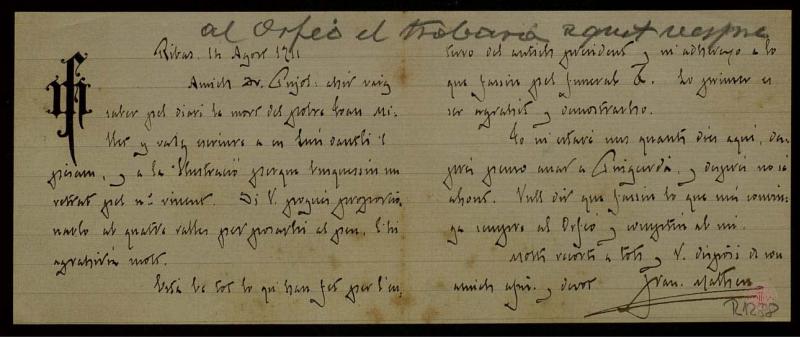 al Orfeó el trobará aquet vespre
Ribas. 14 Agost 1911
Amich Sr. Pujol: ahir vaig
saber pel diari la mort del pobre Joan Mi-
llet y vaig escriure a en Lluís desde l's-
piram, y a la Ilustració perque tinguessin un
retrat pel nº vinent. Si V. pogués proporcio-
narlo al quatre ratlles per posarhi al peu, l'hi
agrahiria molt.
Está bé tot lo qu'han fet per l'en-
terro del antich president y m'adhereixo a lo
que fassin pel funeral &. Lo primer es
ser agrahits y demostrarho.
Jo m'estaré uns quants dies aquí, des-
prés penso anar a Puigcerdá, y després no sé
ahont. Vull dir que fassin lo que més convin-
ga sempre al Orfeó y comptin ab mi.
Molts recorts a tots y V. disposi de son
amich afm. y devot Fran. Matheu
R1238